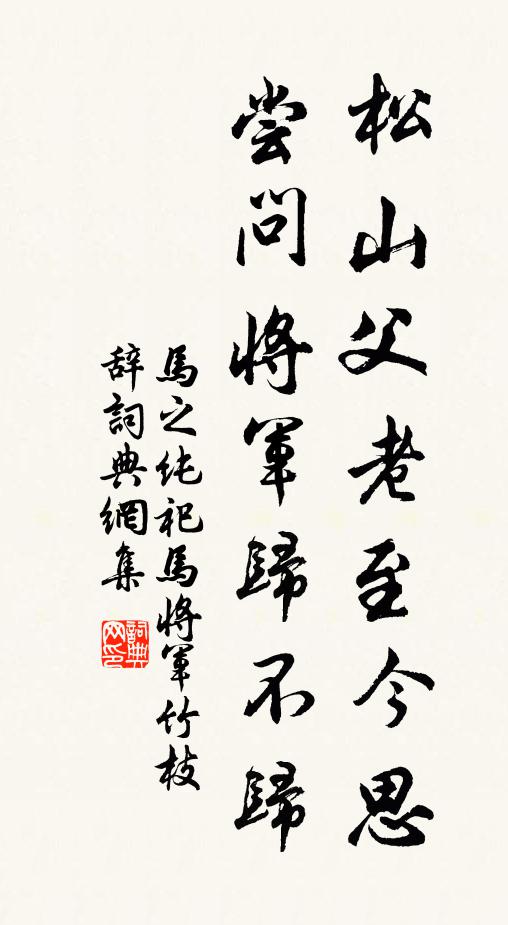 松山父老至今思
尝問将軍歸不歸
馬之純祀馬将軍竹枝
辞詞典網集
詞典网印